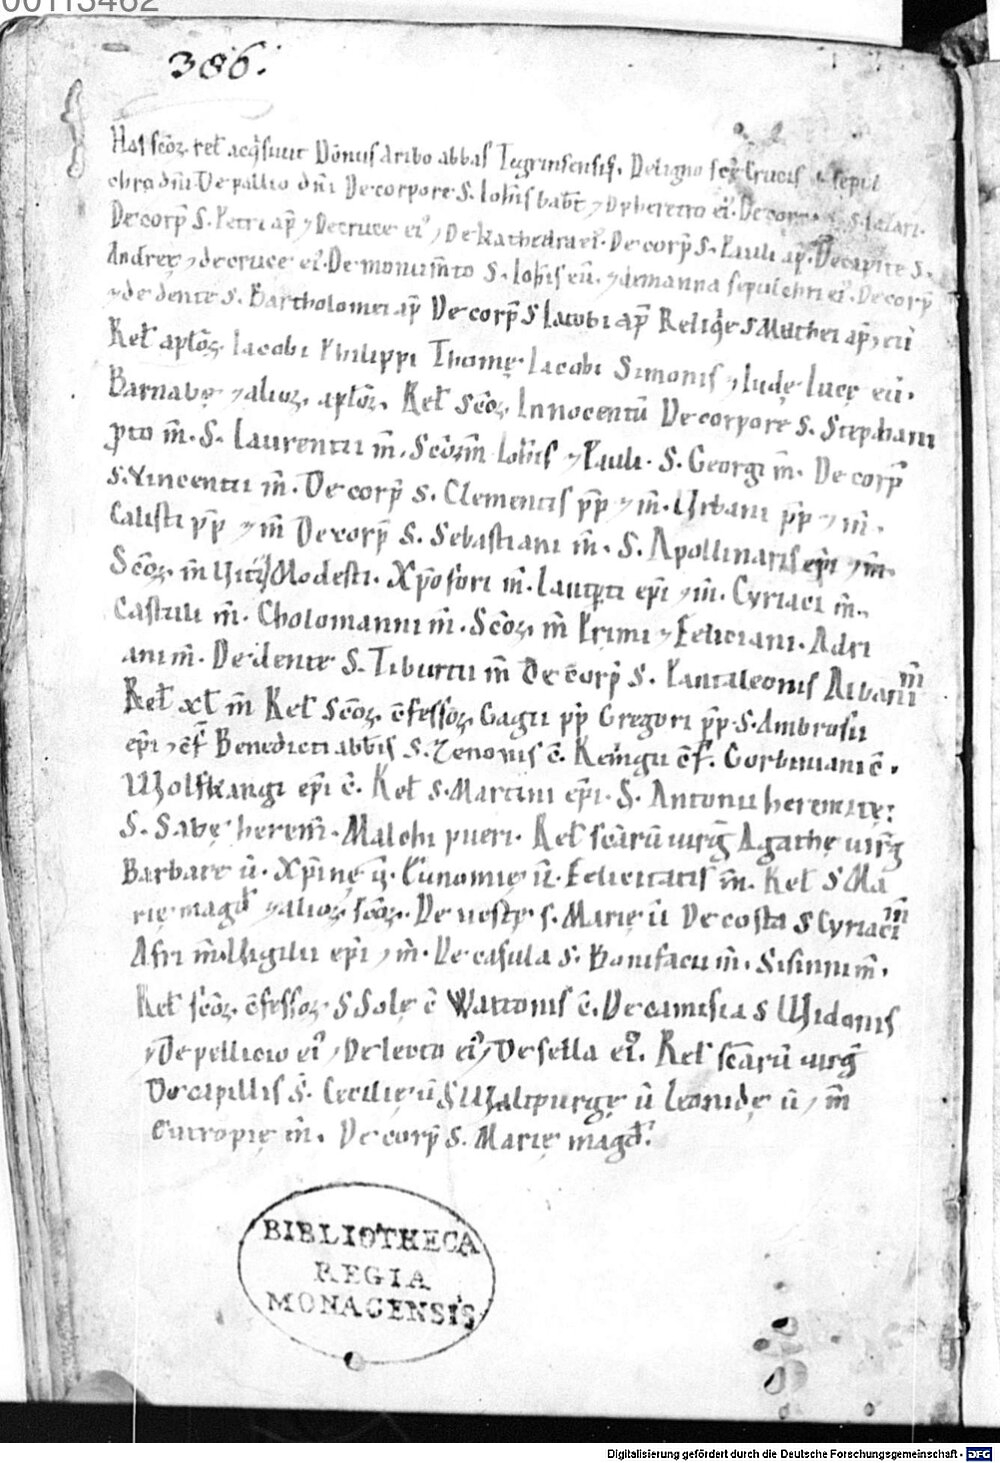 00113462
386.
Has scōꝝ reł acq̇sivit Dōnus Aribo abbas Tegrinsensis. De ligno scę̄ Crucis sepul
chro dn̄i De pallio dn̄i De corpore S. Ioh̄is bab̄t ⁊ D pheretro ei᷒. De corp S. Lazari.
De corp̄ S. Petri ap̄ ⁊ De cruce ei᷒ ⁊ De kathedra ei᷒. De corp̄ S. Pauli ap̄. De capite S.
Andreę ⁊ de cruce ei᷒. De monum̄to S. Ioh̄is eū. ⁊ de manna sepulchri ei᷒. De corp̄
⁊ de dente S. Bartholomei ap̄ De corp̄ S Iacobi ap̄ Reliq̇e S Mathei ap̄ ⁊ eū
Reł aplōꝝ Iacobi Philippi Thomę Iacobi Simonis ⁊ Iudę Lucę eū.
Barnabę ⁊ alioꝝ aplōꝝ. Reł scōꝝ Innocentū De corpore S. Stephani
ꝓto m̄. S. Laurentii m̄. Scōꝝ m̄ Ioh̄is ⁊ Pauli. S. Georgi m̄. De corp̄
S. Vincentii m̄. De corp̄ S. Clementis p̄p ⁊ m̄. Urbani p̄p ⁊ m̄.
Calisti p̄p ⁊ m̄ De corp̄ S. Sebastiani m̄. S. Apollinaris ep̄i ⁊ m̄.
Scōꝝ m̄ Viti ⁊ Modesti. Xp̄ofori m̄. Lantꝑti ep̄i ⁊ m̄. Cyriaci m̄.
Castuli m̄. Cholomanni m̄. Scōꝝ m̄ Primi ⁊ Feliciani. Adri
ani m̄. De dente S. Tiburtii m̄ De corp̄ S. Pantaleonis Albani m̄
Reł xl m̄ Reł scōꝝ c̄fessōꝝ Gagii p̄p Gregori p̄p S. Ambrosii
ep̄i ⁊ c̄f Benedicti abb̄is S. Zenonis c̄. Remgii c̄f. Corbiniani c̄.
Wolfkangi ep̄i c̄. Reł S. Martini ep̄i. S. Antonii heremitę:
S. Sabę herem̄. Malchi pueri. Reł scārū virḡ Agathę virḡ
Barbare ū. Xp̄inę ū. Eunomię ū. Felicitatis m̄. Reł S Ma
rię magd̄ ⁊ alioꝝ scōꝝ. De veste S. Marię ū De costa S Cyriaci m̄
Afri m̄. Vigilii ep̄i ⁊ m̄. De casula S. Bonifacii m̄. Sisinni m̄.
Reł scōꝝ c̄fessoꝝ S Solę c̄ Wattonis c̄. De camisia S Widonis
⁊ De pellicio ei᷒ ⁊ De lecto ei᷒ ⁊ De sella ei᷒. Reł scārū virḡ
De capillis S. Cecilię ū S Waltpurgę ū Leonidę ū ⁊ m̄
Eutropię m̄. De corp̄ S. Marię magd̄.
BIBLIOTHECA
REGIA
MONACENSIS
Digitalisierung gefördert durch die Deutsche Forschungsgemeinschaft - DFG